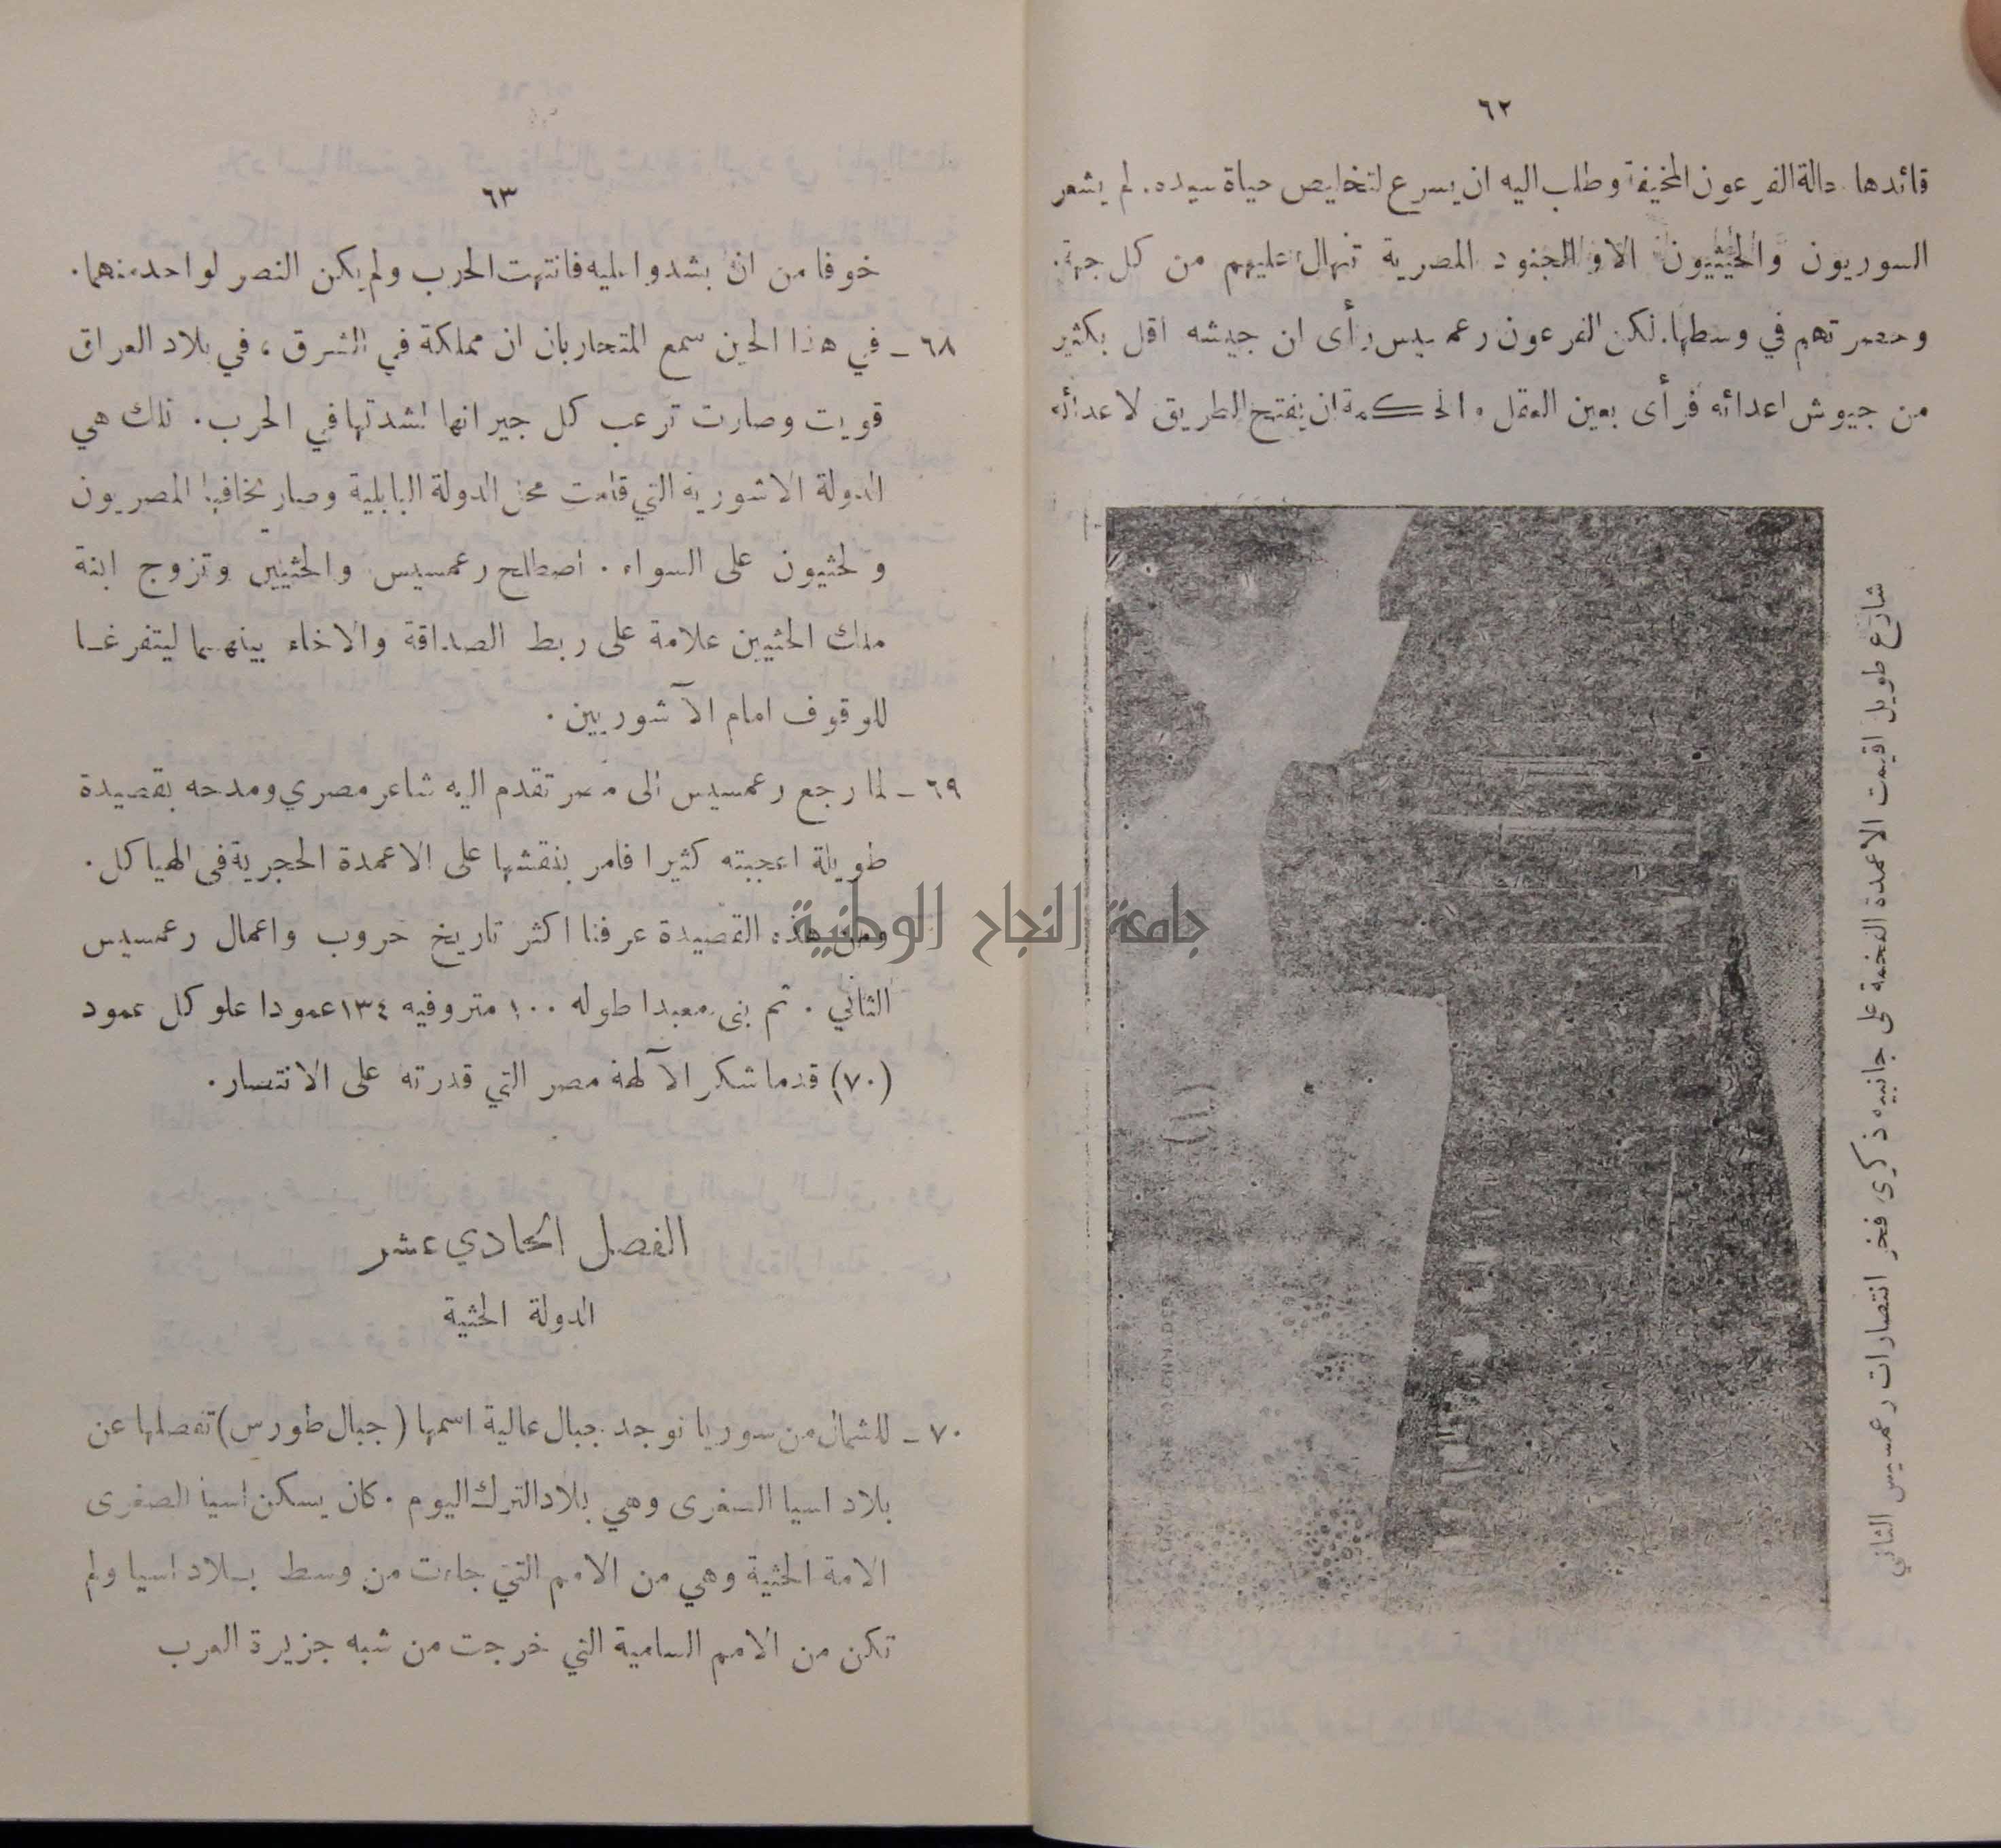 ٦٢
قائدها حالة الفرعون المخيفة وطلب اليه ان يسرع لتخليص حياة سيده. لم يشعر
السوريون والحثيون الا والجنود المصرية تنهال عليهم من كل جهة.
وحصرتهم في وسطها. لكن الفرعون رعمسيس رأى ان جيشه اقل بكثير
من جيوش اعدائه فرأى بعين العقل والحكمة ان يفتح الطريق لاعدائه
شارع طويل اقيمت الاعمدة الفخمة على جانبيه ذكرى فخر انتصارات رعمسيس الثاني
٦٣
خوفا من ان يشدوا عليه فانتهت الحرب ولم يكن النصر لواحد منهما.
٦٨ - في هذا الحين سمع المتحاربان ان مملكة في الشرق، في بلاد العراق
قويت وصارت ترعب كل جيرانها لشدتها في الحرب. تلك هي
الدولة الاشورية التي قامت محل الدولة البابلية وصار يخافها المصريون
والحثيون على السواء. اصطلح رعمسيس والحثيين وتزوج ابنة
ملك الحثيين علامة على ربط الصداقة والاخاء بينهما ليتفرغا
للوقوف امام الآشوريين.
٦٩ - لما رجع رعمسيس الى مصر تقدم اليه شاعر مصري ومدحه بقصيدة
طويلة اعجبته كثيرا فامر بنقشها على الاعمدة الحجرية في الهياكل.
ومن هذه القصيدة عرفنا اكثر تاريخ حروب واعمال رعمسيس
الثاني. ثم بنى معبدا طوله ١٠٠ متر وفيه ١٣٤ عمودا علو كل عمود
(٧٠) قدما شكر الآلهة مصر التي قدرته على الانتصار.
الفصل الحادي عشر
الدولة الحثية
٧٠ - للشمال من سوريا توجد جبال عالية اسمها (جبال طورس) تفصلها عن
بلاد اسيا الصغرى وهي بلاد الترك اليوم. كان يسكن اسيا الصغرى
الامة الحثية وهي من الامم التي جاءت من وسط بلاد اسيا ولم
تكن من الامم السامية التي خرجت من شبه جزيرة العرب
جامعة النجاح الوطنية